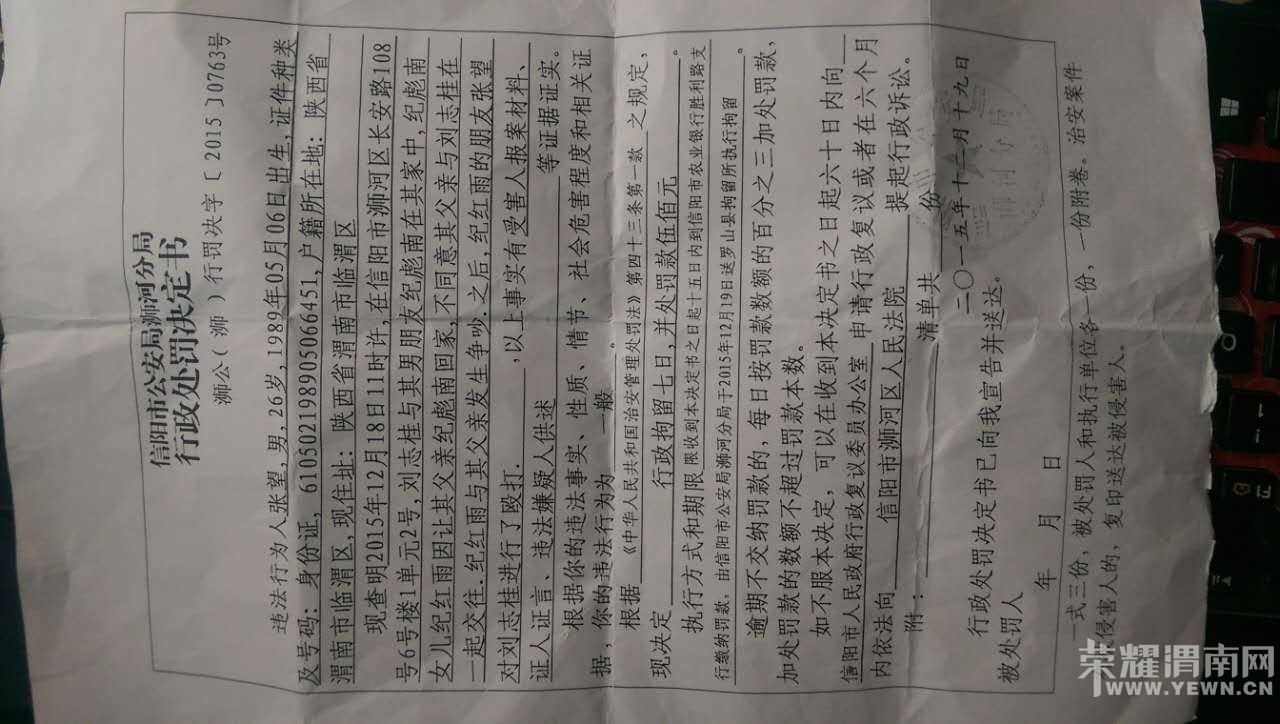 信阳市公安局浉河分局
行政处罚决定书
浉公(浉)行罚决字〔2015〕0763号
违法行为人张望,男,26岁,1989年05月06日出生,证件种类
及号码:身份证,610502198905066451,户籍所在地:陕西省
渭南市临渭区,现住址:陕西省渭南市临渭区
现查明2015年12月18日11时许,在信阳市浉河区长安路108
号6号楼1单元2号,刘志桂与其男朋友纪彪南在其家中,纪彪南
女儿纪红雨因让其父亲纪彪南回家,不同意其父亲与刘志桂在
一起交往.纪红雨与其父亲发生争吵.之后,纪红雨的朋友张望
对刘志桂进行了殴打.,以上事实有受害人报案材料、
证人证言、违法嫌疑人供述 等证据证实。
根据你的违法事实、性质、情节、社会危害程度和相关证
据,你的违法行为为 一般 。
根据 《中华人民共和国治安管理处罚法》第四十三条第一款 之规定,
现决定 行政拘留七日,并处罚款伍佰元 。
执行方式和期限 限收到本决定书之日起十五日内到信阳市农业银行胜利路支
行缴纳罚款,由信阳市公安局浉河分局于2015年12月19日送罗山县拘留所执行拘留 。
逾期不交纳罚款的,每日按罚款数额的百分之三加处罚款,
加处罚款的数额不超过罚款本数。
如不服本决定,可以在收到本决定书之日起六十日内向
信阳市人民政府行政复议委员办公室 申请行政复议或者在六个月
内依法向 信阳市浉河区人民法院 提起行政诉讼。
附: 清单共 份
二〇一五年十二月十九日
浉河分局
行政处罚决定书已向我宣告并送达。
被处罚人
年 月 日
一式三份,被处罚人和执行单位各一份,一份附卷。治安案件
侵害人的,复印送达被侵害人。
荣耀渭南网
WWW.YEWN.CN